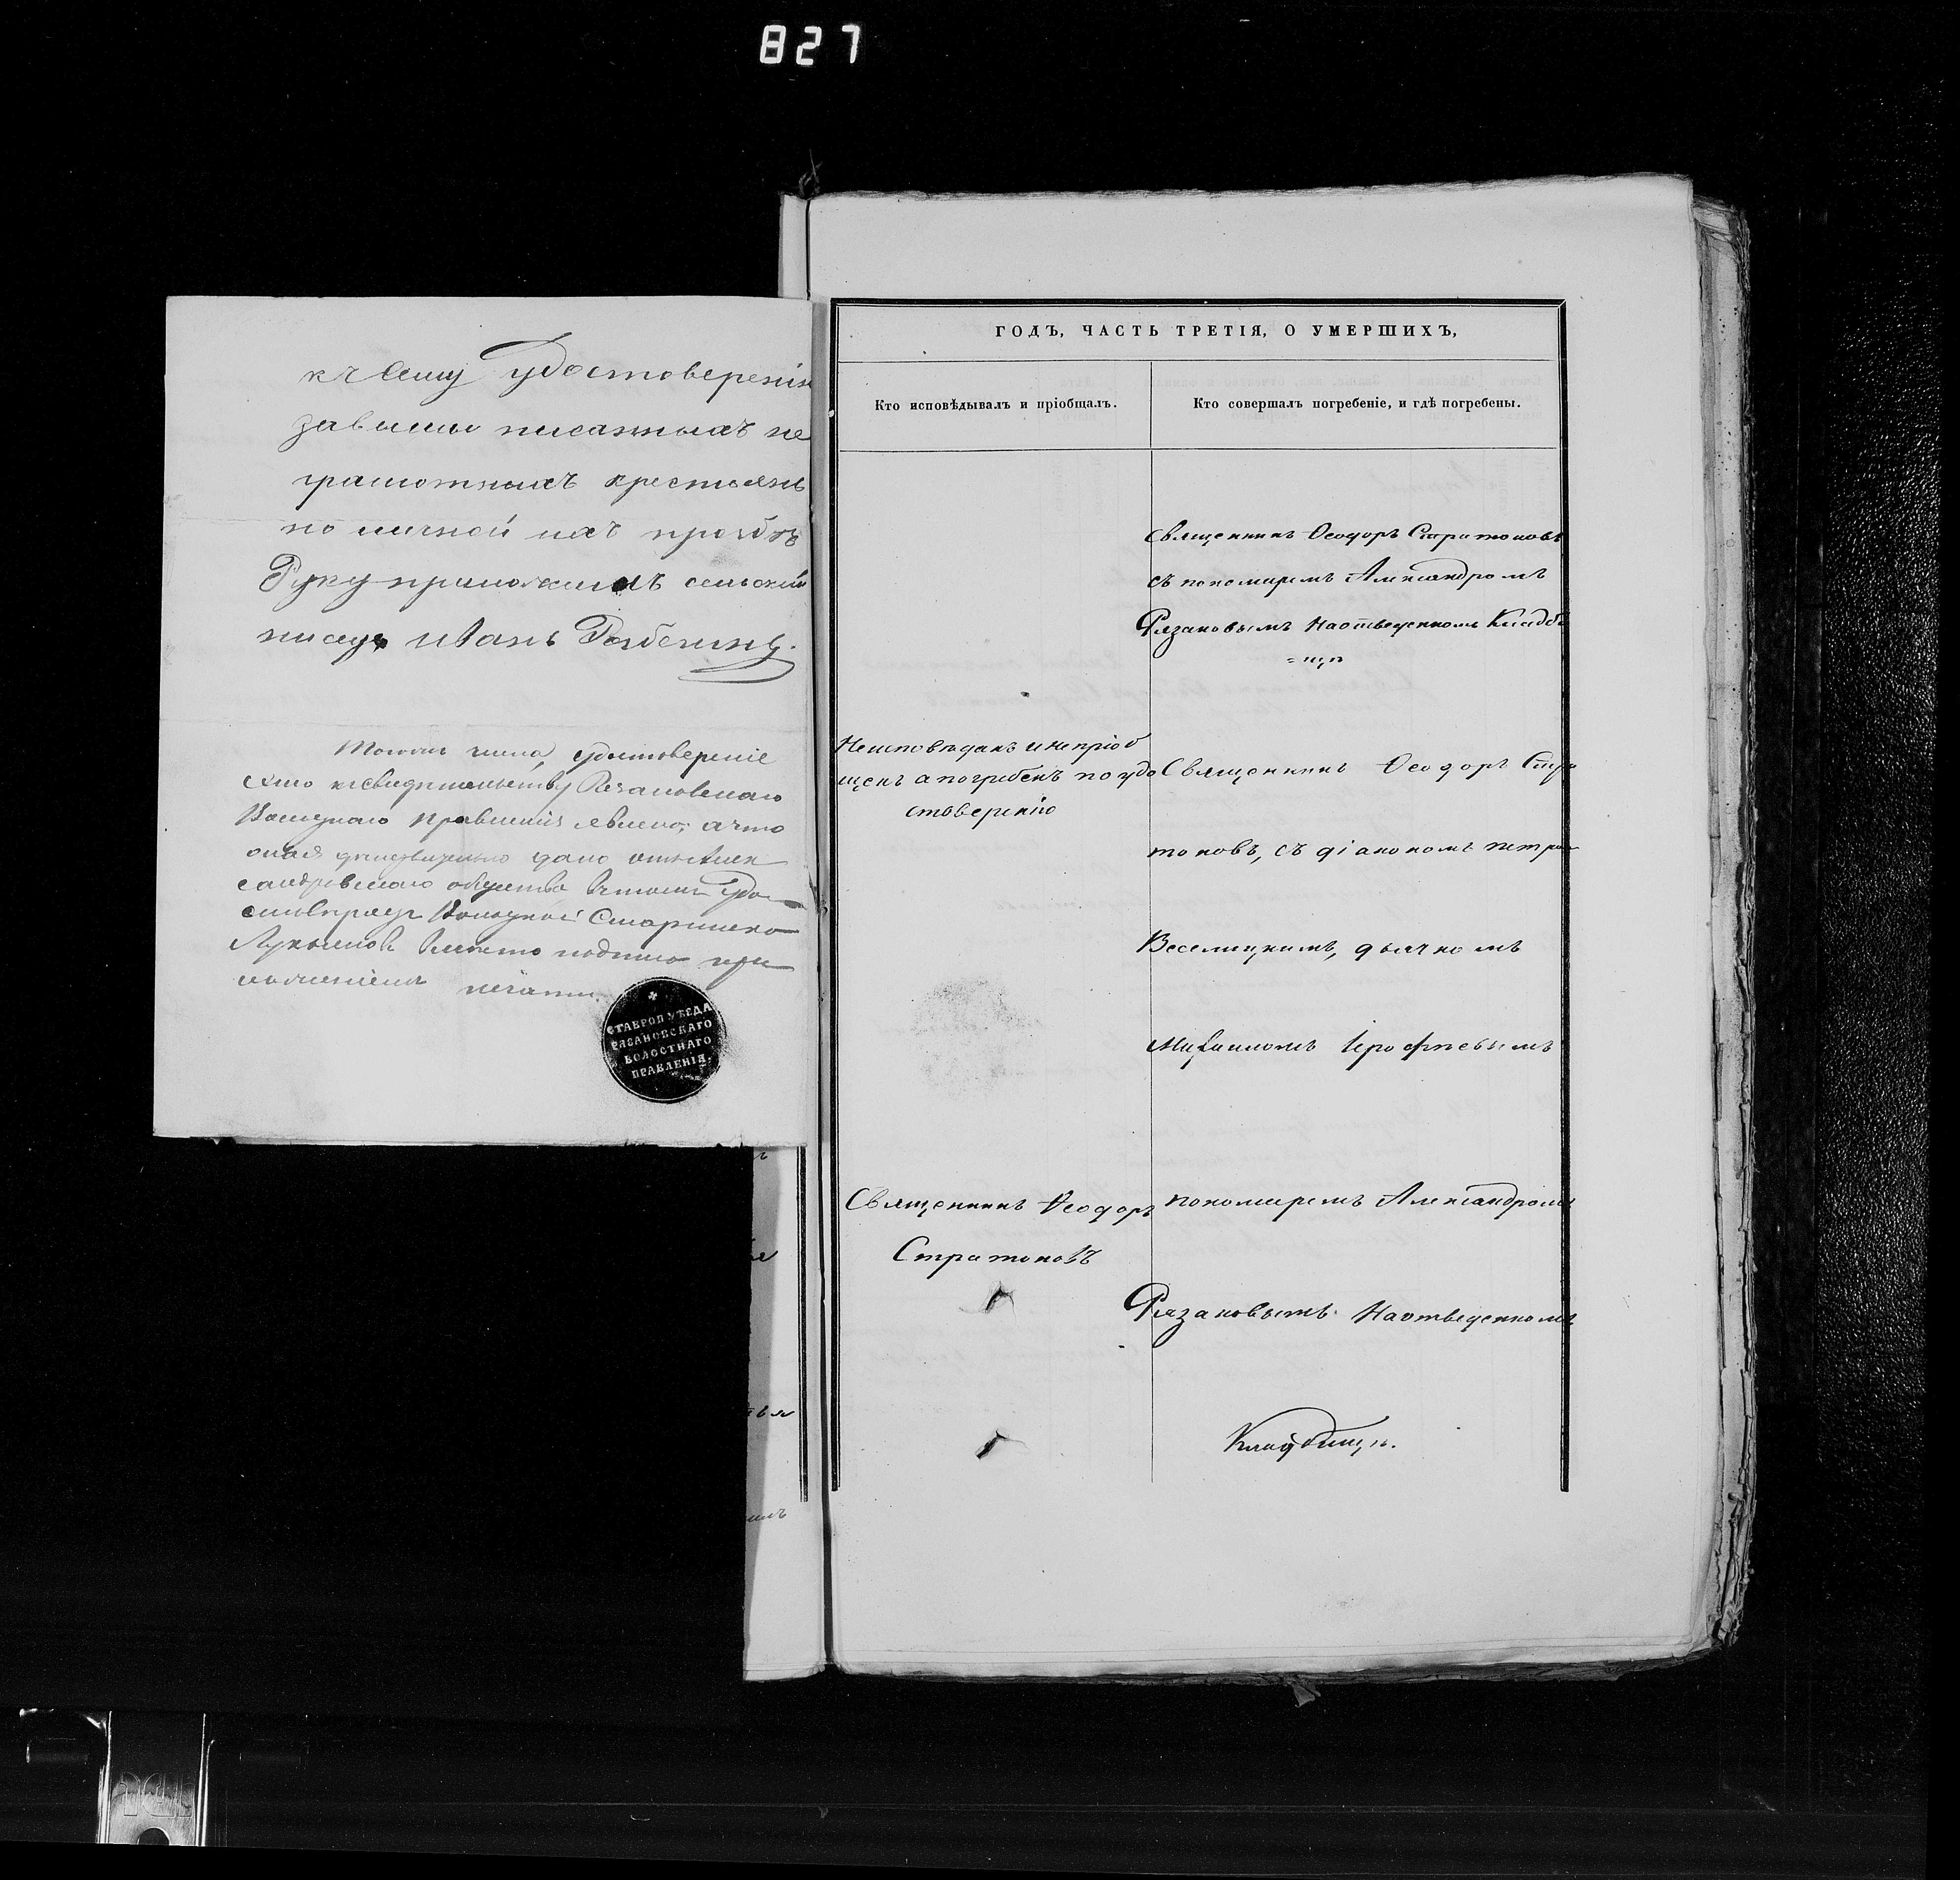 827
къ сему удостоверенію
завыше писанныхъ не
грамотныхъ крестьянъ
по личной ихъ прозбѣ
Руку приложилъ сельскій
писарь Иванъ
Тогожъ числа, удостоверение
сіе къ свидѣтельству Резановскаго
Волоснаго правленія явлено, а что
оная дано
общества въ томъ удо
Волосной Старшина
вместо подписи при
ложеніемъ печати.
СТАВРОП УѢЗДА
РЯЗАНОВСКАГО
ВОЛОСТНАГО
ПРАВЛЕНІЯ.
ГОДЪ, ЧАСТЬ ТРЕТІЯ, О УМЕРШИХЪ,
Кто исповѣдывалъ и пріобщалъ.
Кто совершалъ погребеніе, и гдѣ погребены.
Священникъ Ѳеодоръ Стратоновъ
съ пономаремъ Александромъ
Рязановымъ На отведенномъ Кладби
=щѣ
Неисповѣданъ и не пріоб
щенъ а погребенъ по удо
стоверенію
Священникъ Ѳеодоръ Стра
тоновъ, съ діакономъ петромъ
Веселицкимъ, дьячкомъ
Михаиломъ Ерофѣевымъ
Священникъ Ѳеодоръ
Стратоновъ
пономаремъ Александромъ
Рязановымъ На отведенномъ
Кладбищѣ.